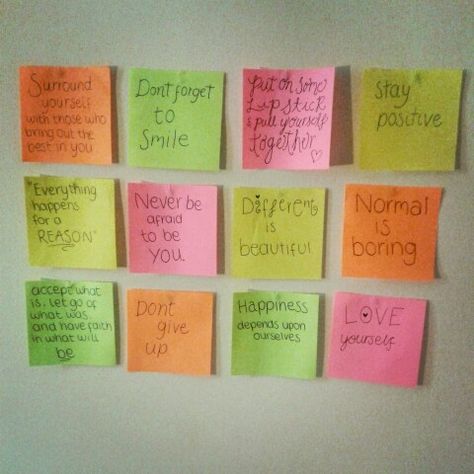 Surround
yourself
with those who
bring out the
best in you
Dont forget
to
Smile
Put on some
Lipstick
& pull yourself
together
Stay
positive
Everything
happens
for a
REASON"
Never be
afraid
to be
you.
Different
is
beautiful
Normal
is
boring
accept what
is. let go of
what was.
and have faith
in what will
be
Dont
give
up
Happiness
depends upon
ourselves
LOVE
yourself